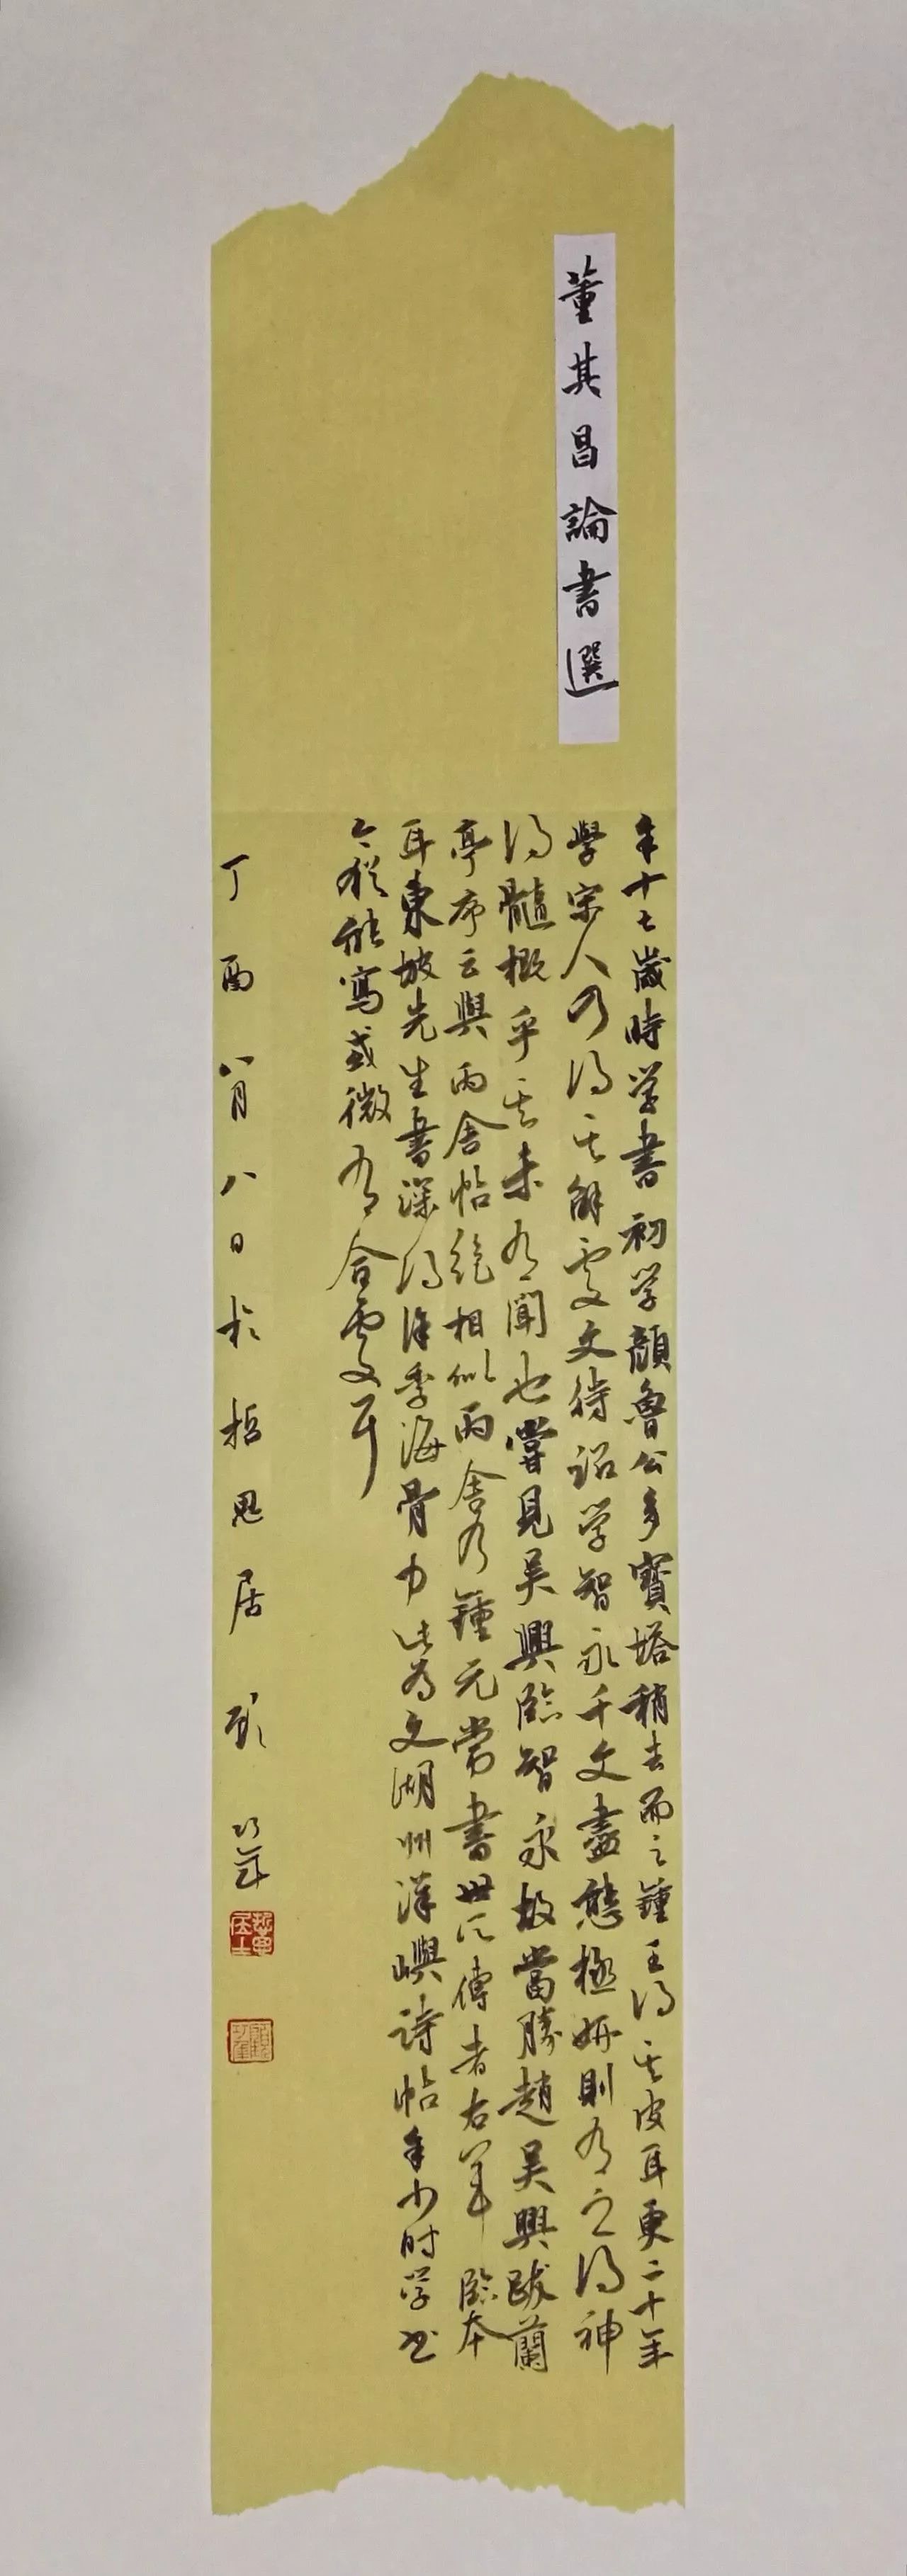 董其昌論書選
年十七歲時学書初学顏魯公多寶塔稍去而之鍾王得其皮耳更二十年
學宋人乃得其解處文待詔学智永千文盡態極妍則有之得神
得髓概乎其未有聞也嘗見吳興臨智永故當勝趙吳興跋蘭
亭序云與丙舍帖絶相似丙舍乃鍾元常書世所傳者右軍臨本
耳東坡先生書深得徐季海骨力此為文湖州洋嶼詩帖余少時学書
今猶能寫或微有合處耳
丁酉八月八日於哲思居